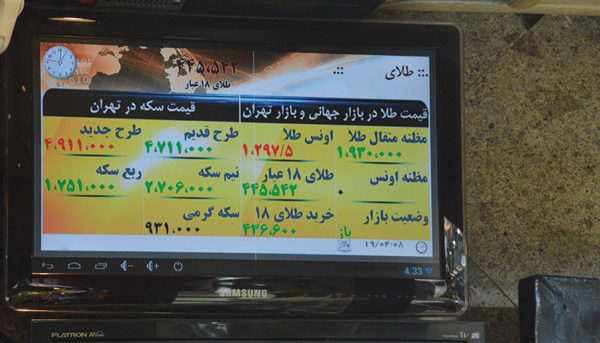 .:: طلای ::.
۴۴۵،۵۴۲
طلای ۱۸ عیار
قیمت طلا در بازار جهانی و بازار تهران
قیمت سکه در تهران
مظنه مثقال طلا
۱،۹۳۰،۰۰۰
اونس طلا
۱،۲۹۷/۵
طرح قدیم
۴،۷۱۱،۰۰۰
طرح جدید
۴،۹۱۱،۰۰۰
مظنه اونس
۰
طلای ۱۸ عیار
۴۴۵،۵۴۲
نیم سکه
۲،۷۰۶،۰۰۰
ربع سکه
۱،۷۵۱،۰۰۰
وضعیت بازار
باز
خرید طلای ۱۸
۴۳۶،۶۰۰
سکه گرمی
۹۳۱،۰۰۰
۱۹/۰۴:۰۸
4:33
SAMSUNG
FLATRON Wide
TV